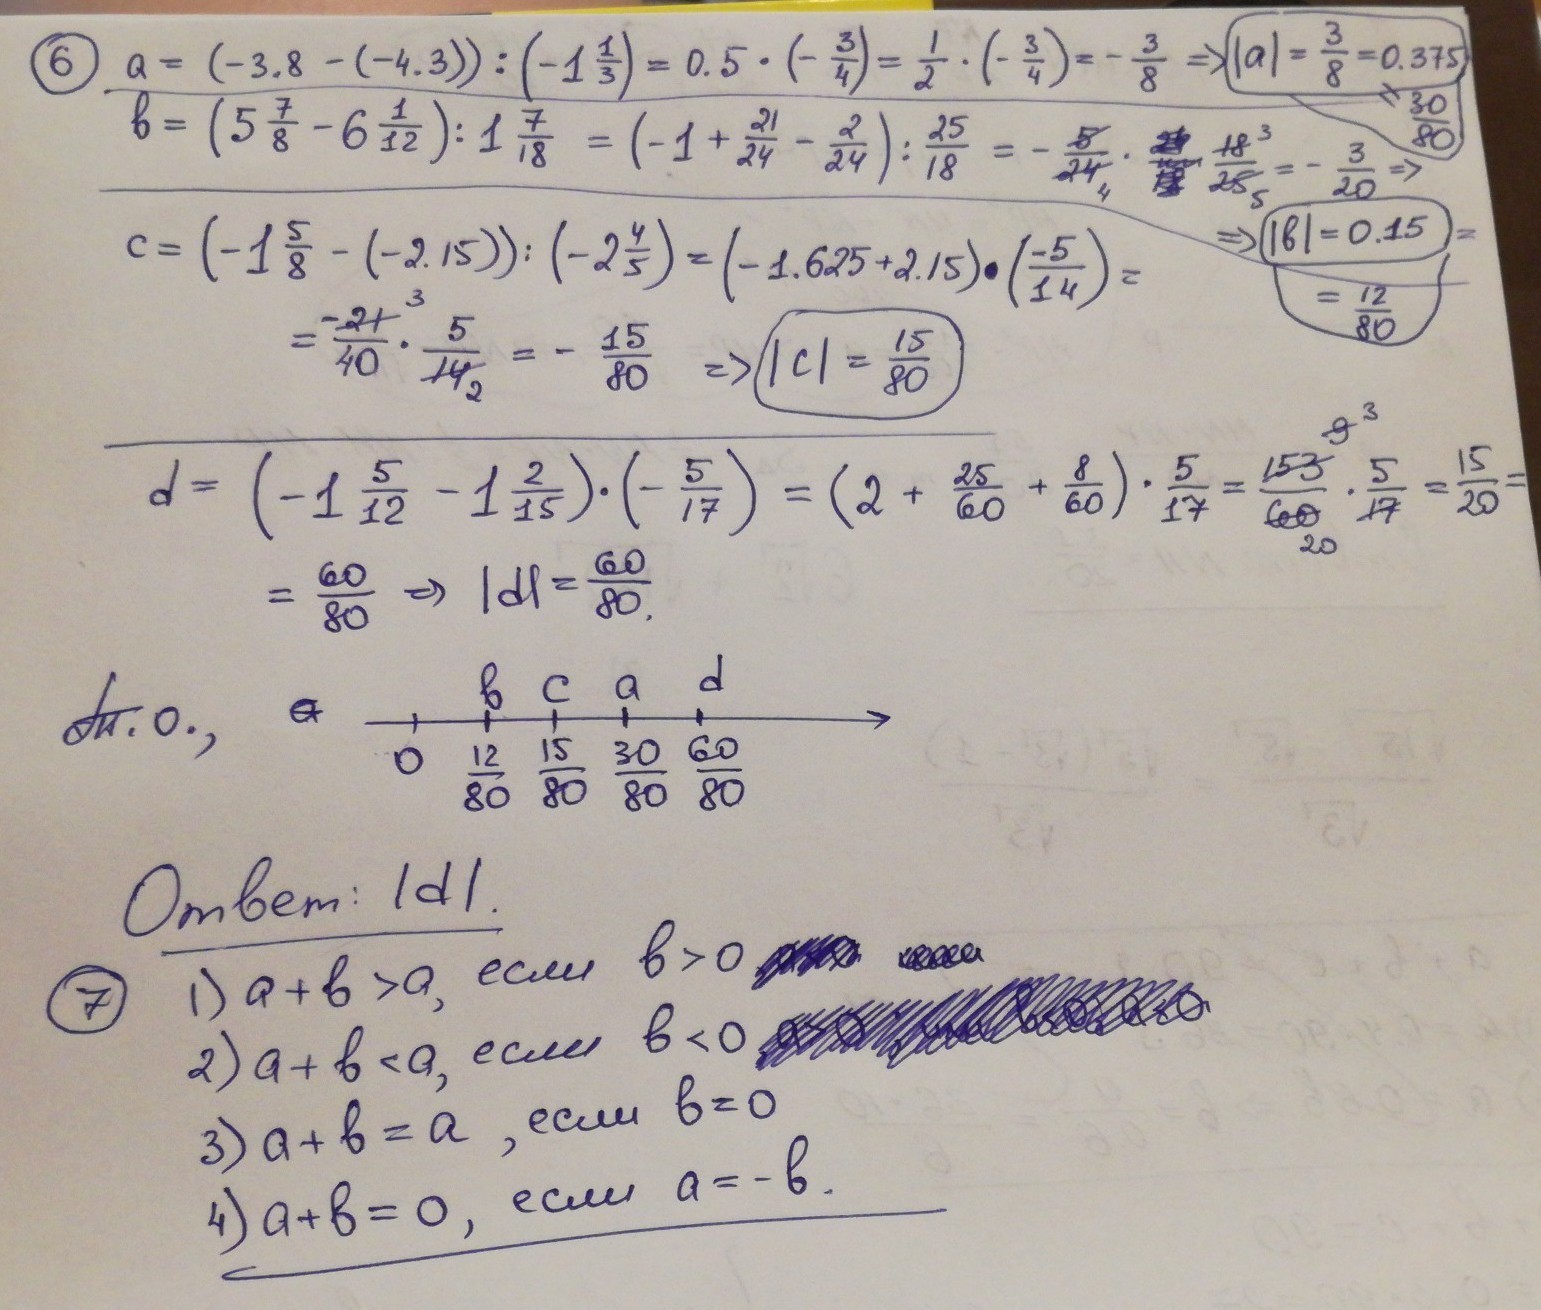 6 a = (-3.8 - (-4.3)) : (-1 1/3) = 0.5 · (-3/4) = 1/2 · (-3/4) = -3/8 => |a| = 3/8 = 0.375 = 30/80
b = (5 7/8 - 6 1/12) : 1 7/18 = (-1 + 21/24 - 2/24) : 25/18 = - 5/24 4 · 18 3/25 5 = - 3/20 =>
=> |b| = 0.15 =
= 12/80
c = (-1 5/8 - (-2.15)) : (-2 4/5) = (-1.625 + 2.15) · (-5/14) =
= -21 3/40 · 5/14 2 = - 15/80 => |c| = 15/80
d = (-1 5/12 - 1 2/15) · (- 5/17) = (2 + 25/60 + 8/60) · 5/17 = 153 9 3/60 20 · 5/17 = 15/20 =
= 60/80 => |d| = 60/80.
т.о.,
b c a d
0 12/80 15/80 30/80 60/80
Ответ: |d|.
7 1) a + b > a, если b > 0
2) a + b < a, если b < 0
3) a + b = a, если b = 0
4) a + b = 0, если a = -b.